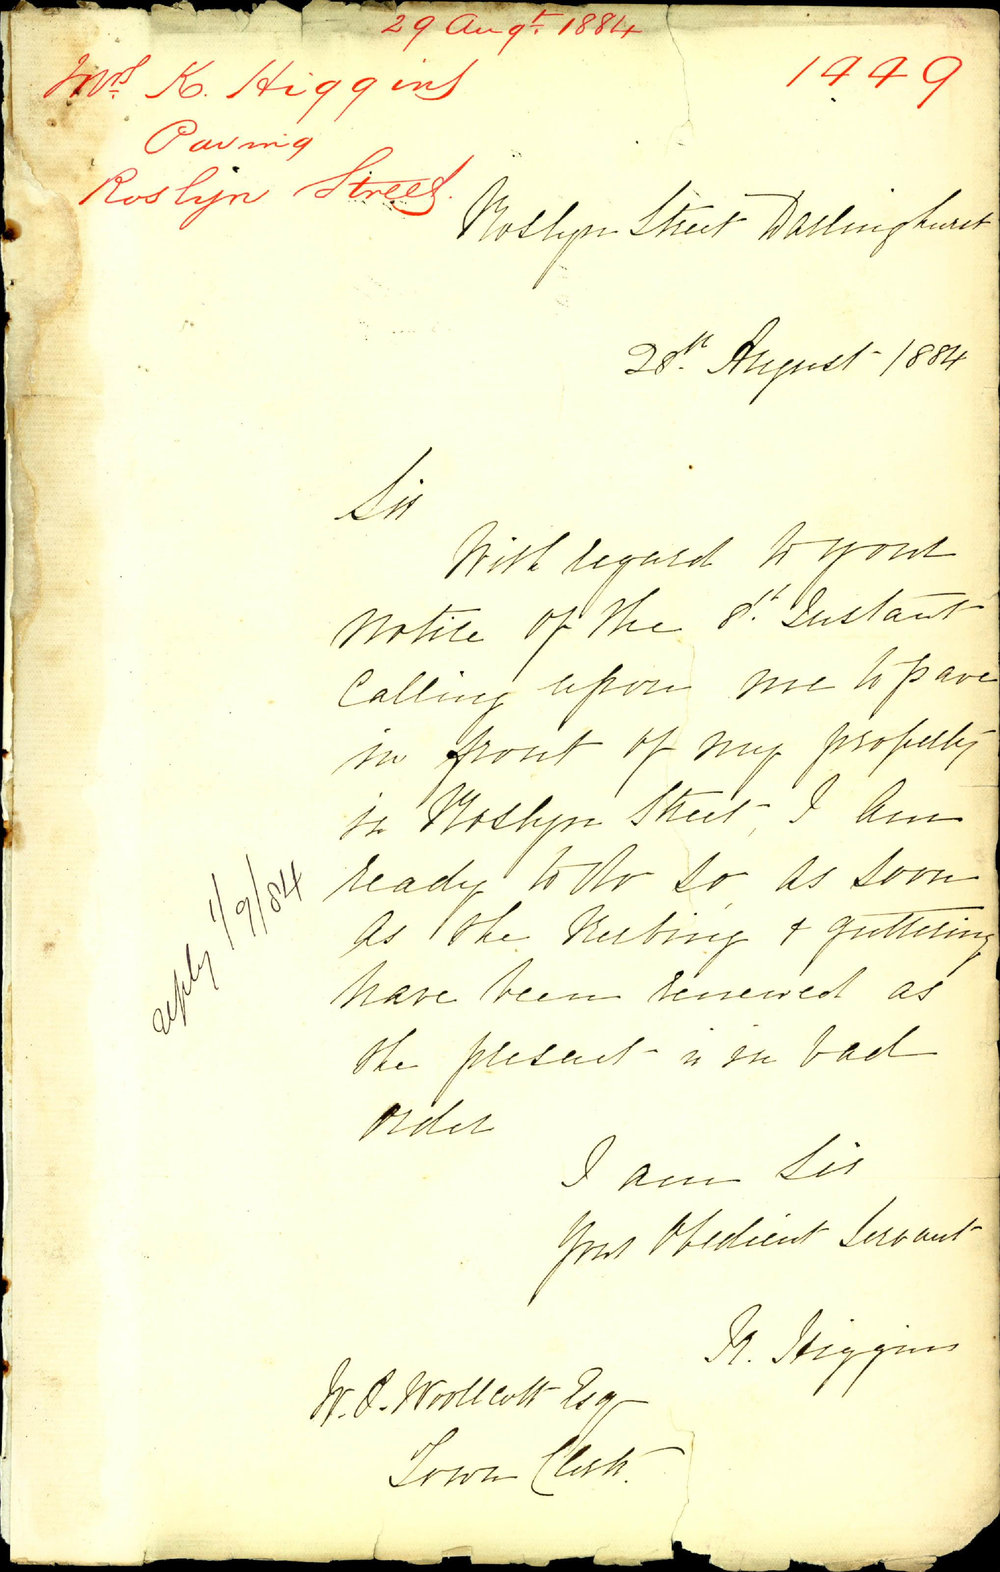 29 Augt. 1884
Mrs. K. Higgins
1449
Paving
Roslyn Street.
Roslyn Street Darlinghurst
28th. August 1884
Sir
With regard to your
notice of the 8th. Instant
Calling upon me to pave
in front of my property
in Roslyn Street, I am
ready to do so as soon
as the Kerbing & guttering
have been renewed as
the present is in bad
order
reply 1/9/84
I am Sir
Your Obedient Servant
K. Higgins
W. Woollcott Esq
Town Clerk.